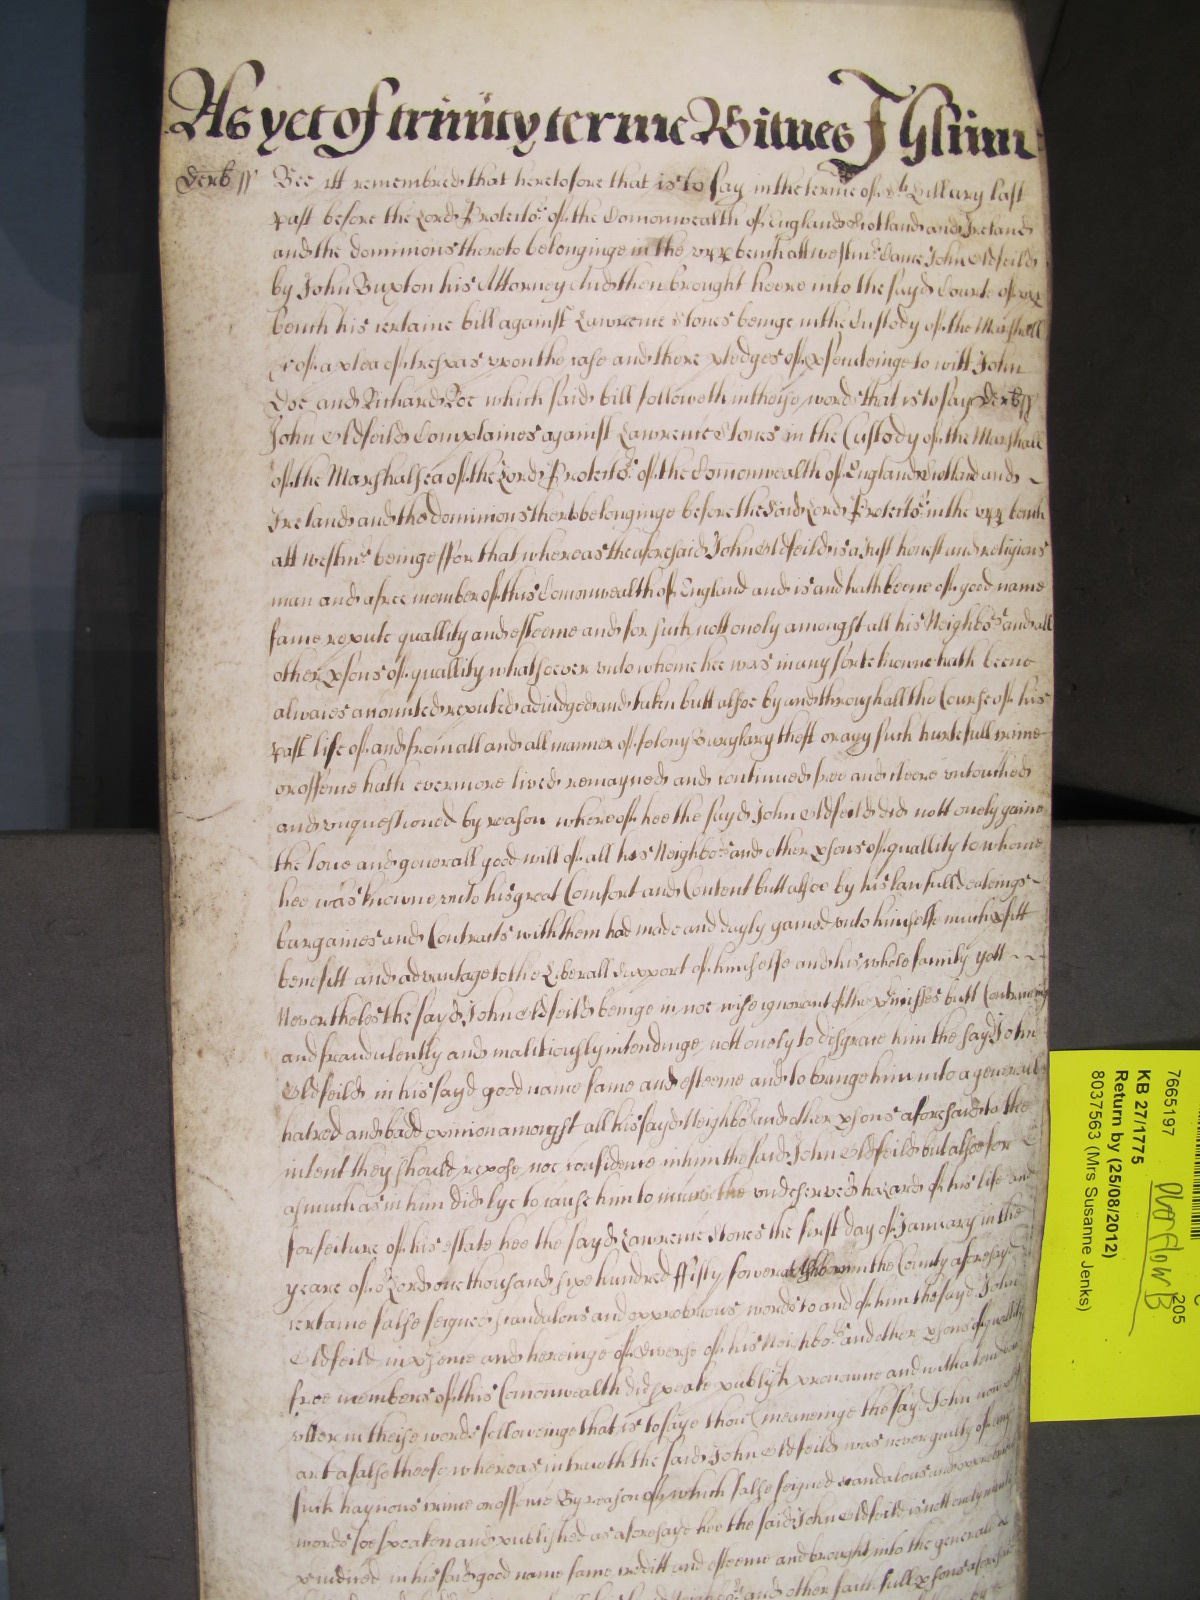 As yet of trinity terme Witnes J Glynn
Derb ss Bee itt remembred that heretofore that is to say in the terme of St Hillary last
past before the Lord Protector of the Comonwealth of England Scotland and Ireland
and the dominions thereto belonginge in the upp bench att westmr Came John Oldfeild
by John Buxton his Attorney And then brought heere into the sayd Courte of upp
bench his certaine bill against Lawrence Stones beinge in the Custody of the Marshall
&c of a plea of trespas upon the case and there pledges of psecuteinge to witt John
Doe and Richard Roe which said bill followeth in theise words that is to say Derb ss
John Oldfeild Complaines against Lawrence Stones in the Custody of the Marshall
of the Marshalsea of the Lord Protector of the Comonwealth of England Scotland and
Ireland and the dominions thereto belonginge before the said Lord Protector in the upp bench
att westmr beinge ffor that whereas the aforesaid John Oldfeild is a Just honest and religious
man and a free member of this Comonwealth of England and is and hath beene of good name
fame repute quallity and esteeme and for such nott onely amongst all his Neighbors and all
other psons of quallity whatsoever unto whome hee was in any sorte knowne hath beene
alwaies accounted reputed adiudged and taken butt alsoe by and through all the Course of his
past life of and from all and all manner of felony Burglary theft or any such hurtefull crime
or offence hath evermore lived remayned and continued free and cleere untouched
and unquestioned by reason whereof hee the sayd John Oldfeild did nott onely gaine
the love and generall good will of all his Neighbors and other psons of quallity to whome
hee was knowne unto his great Comfort and Content butt alsoe by his lawfull dealeings
bargaines and Contracts with them had made and dayly gained unto himselfe much pfitt
benefitt and advantage to the Liberall Support of himselfe and his whole family yett
Nevertheles the sayd John Oldfeild beinge in noe wise ignorant of the pmisses butt Contriveing
and fraudulently and malitiously intendinge nott onely to disgrace him the sayd John
Oldfeild in his sayd good name fame and esteeme and to bringe him into a generall
hatred and badd opinion amongst all his sayd Neighbors and other psons aforesaid to the
intent they should repose noe confidence in him the said John Oldfeild but alsoe for
as much as in him did lye to cause him to incurr the undeserved hazard of his life and
forfeiture of his estate hee the sayd Lawrence Stones the first day of January in the
yeare of or Lord one thousand sixe hundred ffifty fower att Ashborne in the County aforesayd
certaine false feigned scandalous and opprobrious words to and of him the sayd John
Oldfeild in psence and hereinge of diverse of his Neighbors and other psons of quallity
free members of this Comonwealth did speake publish pronounce and with a loud voice
utter in theise words followeinge that is to saye thou (meaneinge the sayd John now pt)
art a false theefe whereas in trueth the said John Oldfeild was never guilty of any
such haynous crime or offence By reason of which false feigned scandalous and opprobrious
words soe spoaken and published as aforesayd hee the said John Oldfeild is nott onely
in his said good name fame creditt and esteeme and brought into the generall
Neighbors and other faithfull psons aforesaid
7665197
KB 27/1775
Return by (25/08/2012)
8037563 (Mrs Susanne Jenks)
Overflow B
205